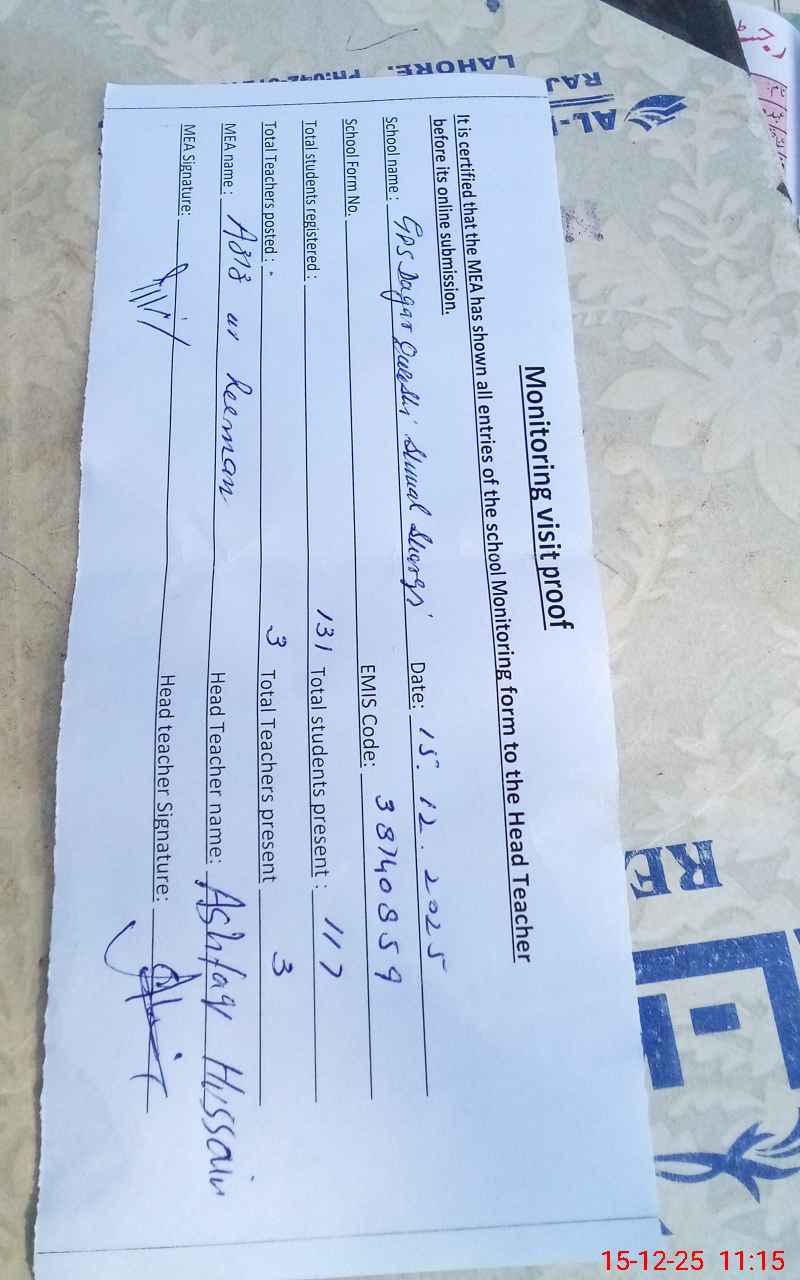 Monitoring visit proof
It is certified that the MEA has shown all entries of the school Monitoring form to the Head Teacher
before its online submission.
School name: GPS Dagar Qureshi Shumal Sharqi Date: 15.12.2025
School Form No. EMIS Code: 38740859
Total students registered: 131 Total students present: 117
Total Teachers posted: 3 Total Teachers present 3
MEA name: ur Head Teacher name: Ashfaq Hussain
MEA Signature: Head teacher Signature:
LAHORE. PH:042
RAJ
AL-
RE
15-12-25 11:15